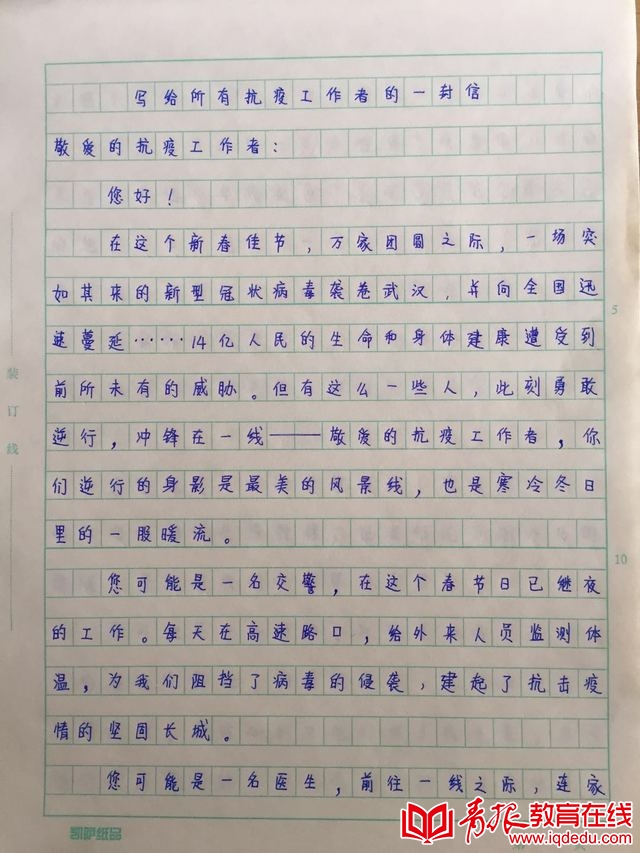 写给所有抗疫工作者的一封信
敬爱的抗疫工作者:
您好!
在这个新春佳节,万家团圆之际,一场突
如其来的新型冠状病毒袭卷武汉,并向全国迅
速蔓延……14亿人民的生命和身体建康遭受到
前所未有的威胁。但有这么一些人,此刻勇敢
逆行,冲锋在一线——敬爱的抗疫工作者,你
们逆行的身影是最美的风景线,也是寒冷冬日
里的一股暖流。
您可能是一名交警,在这个春节日已继夜
的工作。每天在高速路口,给外来人员监测体
温,为我们阻挡了病毒的侵袭,建起了抗击疫
情的坚固长城。
您可能是一名医生,前往一线之际,连家
装订线
5
10
凯萨纸品
青报教育在线
www.iqdedu.com